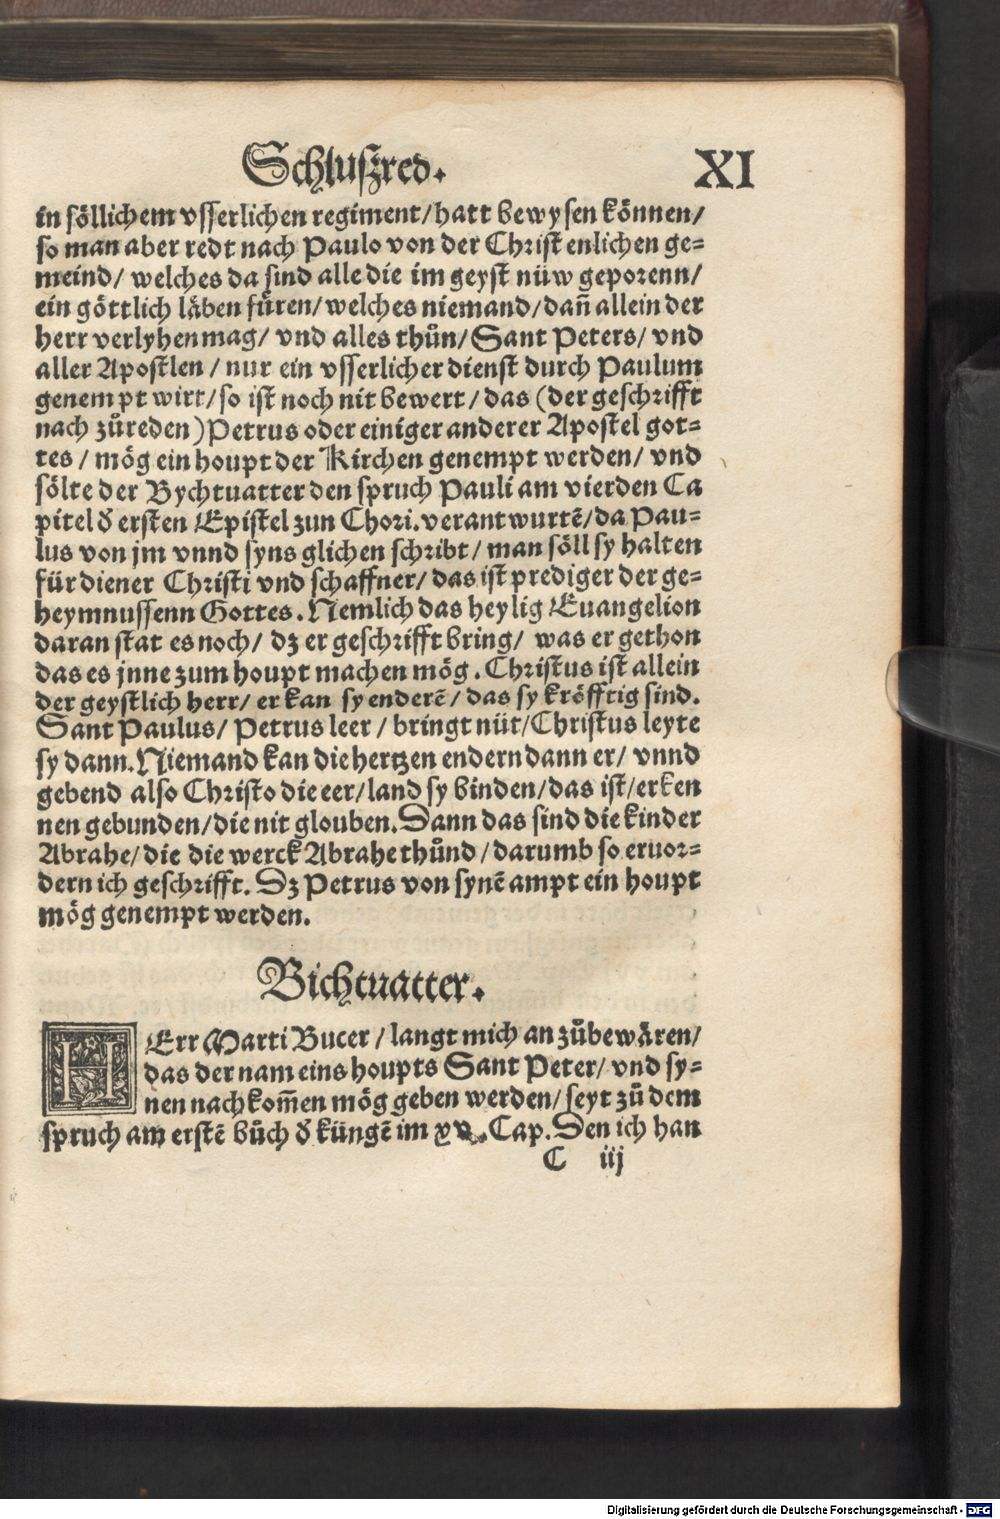 Schluszred. XI
in söllichem vsserlichen regiment/hatt bewysen können/
so man aber redt nach Paulo von der Christenlichen ge=
meind/ welches da sind alle die im geyst nüw geporenn/
ein göttlich läben füren/welches niemand/dañ allein der
herr verlyhen mag/ vnd alles thůn/Sant Peters/ vnd
aller Apostlen/ nur ein vsserlicher dienst durch Paulum
genempt wirt/so ist noch nit bewert/das (der geschrifft
nach zůreden)Petrus oder einiger anderer Apostel got=
tes/ mög ein houpt der Kirchen genempt werden/ vnd
sölte der Bychtuatter den spruch Pauli am vierden Ca
pitel ð ersten Epistel zun Chori.verantwurtē/da Pau=
lus von jm vnnd syns glichen schribt/ man söll sy halten
für diener Christi vnd schaffner/ das ist prediger der ge=
heymnussenn Gottes. Nemlich das heylig Euangelion
daran stat es noch/ dz er geschrifft bring/ was er gethon
das es jnne zum houpt machen mög. Christus ist allein
der geystlich herr/ er kan sy enderē/ das sy kröfftig sind.
Sant Paulus/ Petrus leer/ bringt nüt/Christus leyte
sy dann. Niemand kan die hertzen endern dann er/ vnnd
gebend also Christo die eer/land sy binden/das ist/erken
nen gebunden/die nit glouben.Dann das sind die kinder
Abrahe/die die werck Abrahe thůnd/darumb so eruor=
dern ich geschrifft. Dz Petrus von synē ampt ein houpt
mög genempt werden.
Bichtuatter.
HErr Marti Bucer/ langt mich an zůbewären/
das der nam eins houpts Sant Peter/ vnd sy=
nen nachkom̃en mög geben werden/ seyt zů dem
spruch am erstē bůch ð küngē im xv. Cap. Den ich han
C iij
Digitalisierung gefördert durch die Deutsche Forschungsgemeinschaft - DFG